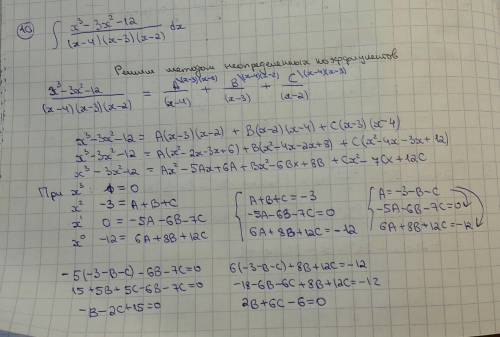 10 ∫ (x³-3x²-12)/((x-4)(x-3)(x-2)) dx
Решим методом неопределенных коэффициентов
(x³-3x²-12)/((x-4)(x-3)(x-2)) = A\(x-3)(x-2)/(x-4) + B\(x-4)(x-2)/(x-3) + C\(x-4)(x-3)/(x-2)
x³-3x²-12 = A(x-3)(x-2) + B(x-2)(x-4) + C(x-3)(x-4)
x³-3x²-12 = A(x²-2x-3x+6) + B(x²-4x-2x+8) + C(x²-4x-3x+12)
x³-3x²-12 = Ax²-5Ax+6A + Bx²-6Bx+8B + Cx²-7Cx+12C
При x³ 1=0
x² -3=A+B+C
x¹ 0=-5A-6B-7C
x⁰ -12=6A+8B+12C
{ A+B+C=-3
-5A-6B-7C=0
6A+8B+12C=-12
{ A=-3-B-C
-5A-6B-7C=0
6A+8B+12C=-12
-5(-3-B-C)-6B-7C=0
15+5B+5C-6B-7C=0
-B-2C+15=0
6(-3-B-C)+8B+12C=-12
-18-6B-6C+8B+12C=-12
2B+6C-6=0